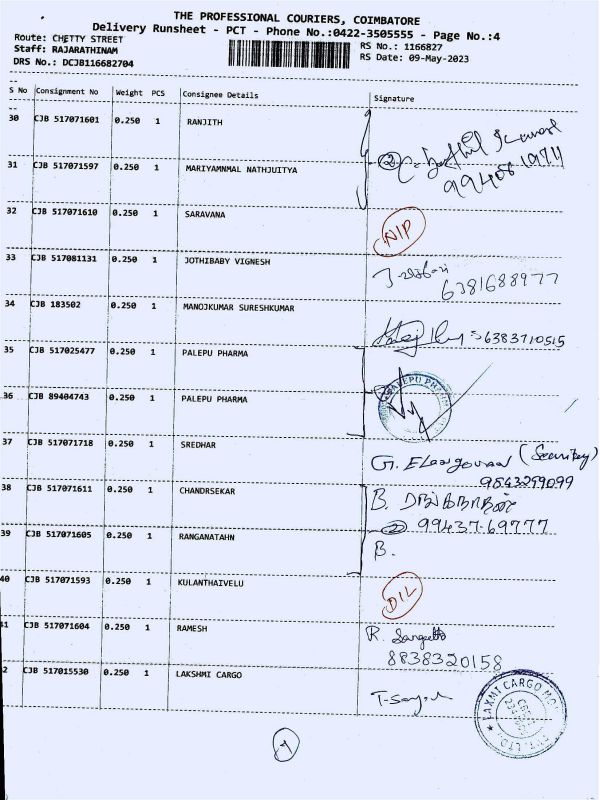 THE PROFESSIONAL COURIERS, COIMBATORE
Delivery Runsheet - PCT - Phone No.:0422-3505555 - Page No.:4
Route: CHETTY STREET
Staff: RAJARATHINAM
DRS No.: DCJB116682704
RS No.: 1166827
RS Date: 09-May-2023
S No Consignment No Weight PCS Consignee Details Signature
30 CJB 517071601 0.250 1 RANJITH
31 CJB 517071597 0.250 1 MARIYAMNMAL NATHJUITYA
2
32 CJB 517071610 0.250 1 SARAVANA
NIP
33 CJB 517081131 0.250 1 JOTHIBABY VIGNESH
6381688977
34 CJB 183502 0.250 1 MANOJKUMAR SURESHKUMAR
6383710515
35 CJB 517025477 0.250 1 PALEPU PHARMA
36 CJB 89404743 0.250 1 PALEPU PHARMA
PALEPU PHARMA
37 CJB 517071718 0.250 1 SREDHAR
G. Elangovan (Security)
9843299099
38 CJB 517071611 0.250 1 CHANDRSEKAR
B.
2 99437-69777
39 CJB 517071605 0.250 1 RANGANATAHN
B.
40 CJB 517071593 0.250 1 KULANTHAIVELU
DIL
41 CJB 517071604 0.250 1 RAMESH
R.
8838320158
2 CJB 517015530 0.250 1 LAKSHMI CARGO
LAXMI CARGO